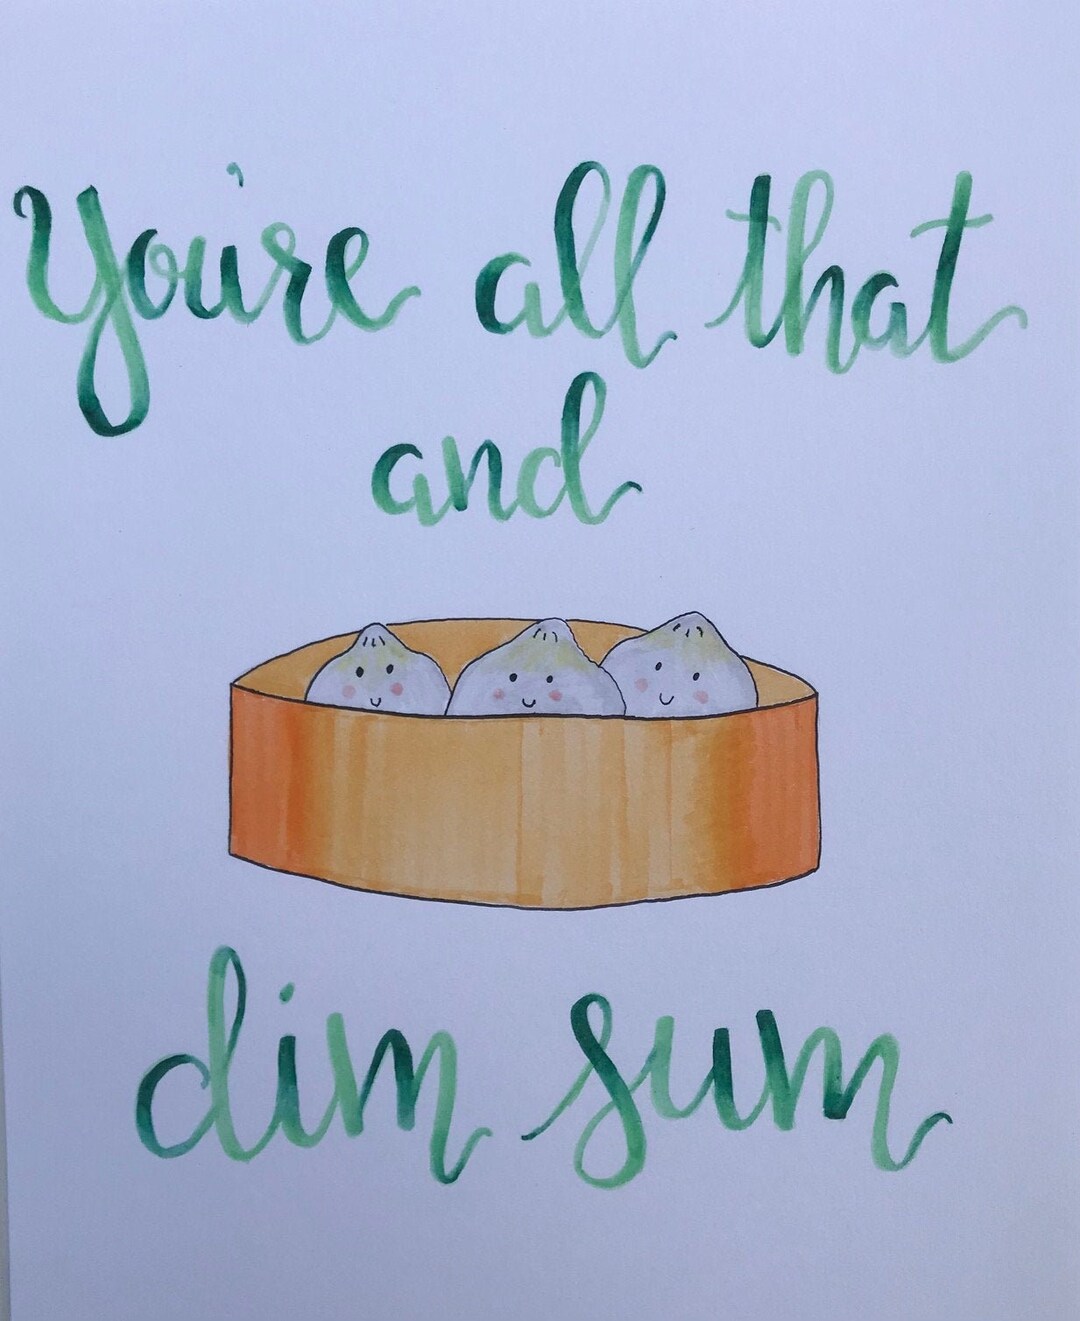 You're all that
and
dim sum